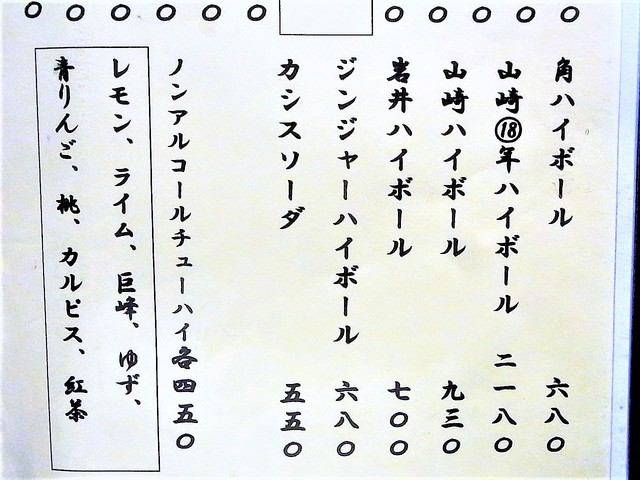 角ハイボール 六八〇
山崎⑱年ハイボール 二一八〇
山崎ハイボール 九三〇
岩井ハイボール 七〇〇
ジンジャーハイボール 六八〇
カシスソーダ 五五〇
ノンアルコールチューハイ各四五〇
レモン、ライム、巨峰、ゆず、
青りんご、桃、カルピス、紅茶